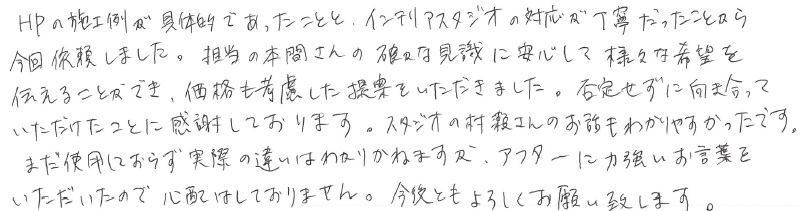 HPの施工例が具体的であったことと、インテリアスタジオの対応が丁寧だったことから
今回依頼しました。担当の本間さんの確かな見識に安心して様々な希望を
伝えることができ、価格も考慮した提案をいただきました。否定せずに向き合って
いただけたことに感謝しております。スタジオの村穀さんのお話もわかりやすかったです。
まだ使用しておらず実際の違いはわかりかねますが、アフターに力強いお言葉を
いただいたので心配はしておりません。今後ともよろしくお願い致します。